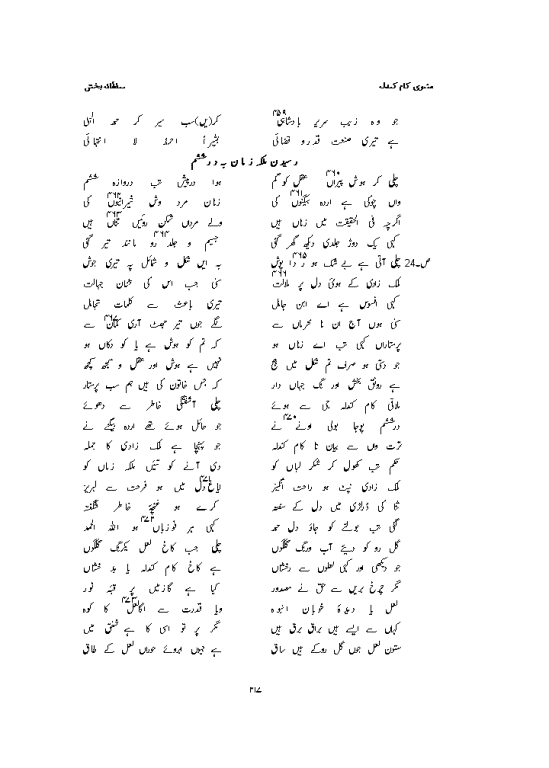 مثنوی کام کندلہ سلطان بخشی
جو وہ زیب سریر بادشاہی۴۵۹ کر(یں)سب سیر کر حمد الہٰی
ہے تیری صنعت قدر و قضائی بشیراً احمدؐ لا انتہائی
رسیدن ملکہ زماں بہ در ششم
چلی کر ہوش پیراں۴۶۰ عقل کو گم ہوا درپیش تب دروازہ ششم
واں چوکی ہے اردہ بیگنوں۴۶۱ کی زنان مرد وش شیرانیوں۴۶۲ کی
اگرچہ فی الحقیقت میں زناں ہیں ولے مرداں شکن روئیں ہیں
کہی یک دوڑ جلدی دیکھ گھر گئی جسیم و جلد رو۴۶۴ مانند تیر گئی
ص۔24 چلی آتی ہے بے شک ہو پوش بہ ایں شکل و شمائل یہ تیری جوش
ملک زادی کے ہوئی دل پر ملالت۴۶۶ سنی جب اس کی جہالت
کہی افسوس ہے اے ابن جاہل تیری باعث سے کلمات تجاہل
سنی ہوں آج ان نا محرماں سے لگے جوں تیر آری سے
پرستاراں کہی تب اے زناں ہو کہ تم کو ہوش ہے یا کو دکاں ہو
جو دستی ہو صرف تم شکل میں ہیچ نہیں ہے ہوش اور عقل و سمجھ کچھ
ہے رونق بخش اور نگ جہاں دار کہ جس خاتون کی ہیں ہم سب پرستار
ملاتی کام کندلہ جی سے ہوئے چلی آشفتگی خاطر سے دھوئے
در ششم پوچا بولی اونے۴۷۰ نے جو حائل ہوئے تھے اردہ بیگنے نے
ترت وں سے بیان نا کام کندلہ جو پہنچا ہے ملک زادی کا جملہ
حکم تب کھول کر شکر لباں کو دی آنے کو تئیں ملکہ زماں کو
ملک زادی نپٹ ہو راحت انگیز ایاغ دل میں ہو فرحت سے لبریز
ثنا کی ڈرلڑی میں دل کے سفتہ کرے ہو غنچۂ خاطر شگفتہ
گئی تب بولنے کو جاؤ دل حمد کہی ہر فوزباں۴۷۲ ہو اللہ الحمد
گل رو کو دیئے آپ ورنگ گلگوں چلی جب کاخ لعل یکرنگ گلگوں
جو دیکھی اور کہی لعلوں سے رخشاں ہے کاخ کام کندلہ یا بدخشاں
مگر چرخ بریں سے حق نے مصدور کیا ہے گازمیں پر قبہ نور
لعل یا دیدۂ خوباں انبوہ ویا قدرت سے اگالعل۴۷۳ کا کوہ
کہاں سے ایسے ہیں براق برق ہیں مگر پر تو اسی کا ہے شفق میں
ستون لعل جوں گل روکے ہیں ساق ہے جیوں ابروئے حوراں لعل کے طاق
۳۱۷